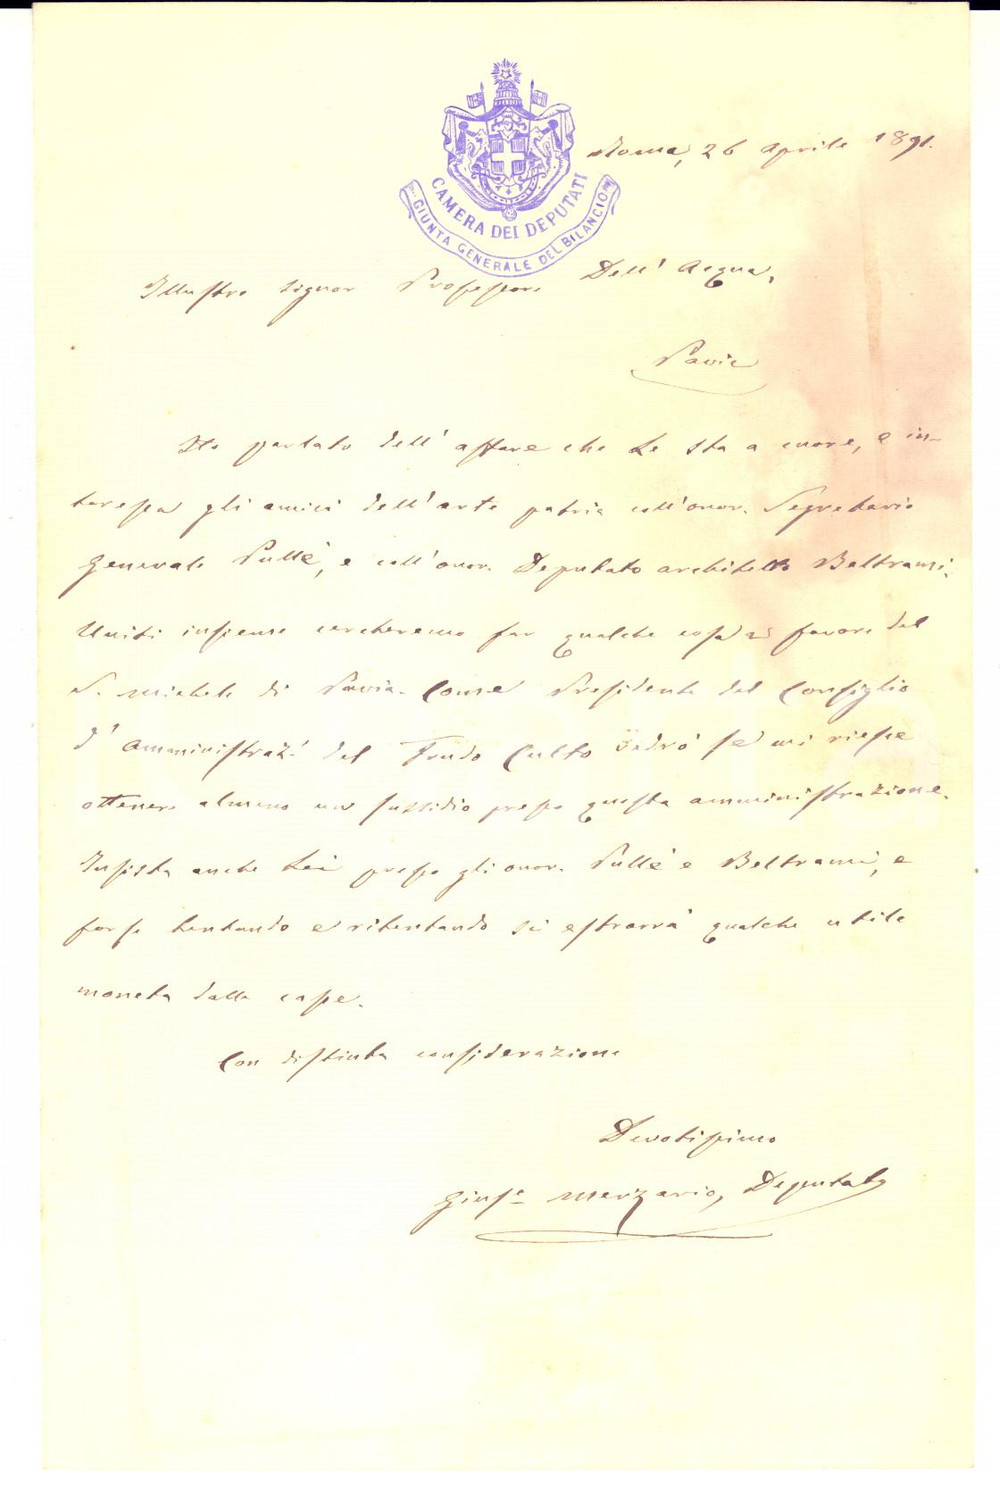 CAMERA DEI DEPUTATI
GIUNTA GENERALE DEL BILANCIO
Roma, 26 Aprile 1891.
Illustre Signor Professore Dell' Acqua,
Pavia
Ho parlato dell' affare che Le sta a cuore, e in-
teressa gli amici dell' arte patria coll' onor. Segretario
Generale Pullè, e coll' onor. Deputato architetto Beltrami.
Uniti insieme cercheremo far qualche cosa a favore del
S. Michele di Pavia. Come Presidente del Consiglio
d' Amministraz.e del Fondo Culto vedrò se mi riesce
ottenere almeno un sussidio presso questa amministrazione.
Insista anche Lei presso gli onor. Pullè e Beltrami, e
forse tentando e ritentando si estrarrà qualche utile
moneta dalle casse.
Con distinta considerazione
Devotissimo
Gius.e Merzario, Deputato